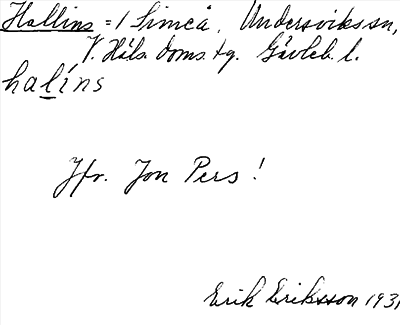 Hallins = 1 Simeå, Undersviks sn,
V. Häls. doms. tg. Gävleb. l.
halíns
Jfr. Jon Pers!
Erik Eriksson 1931